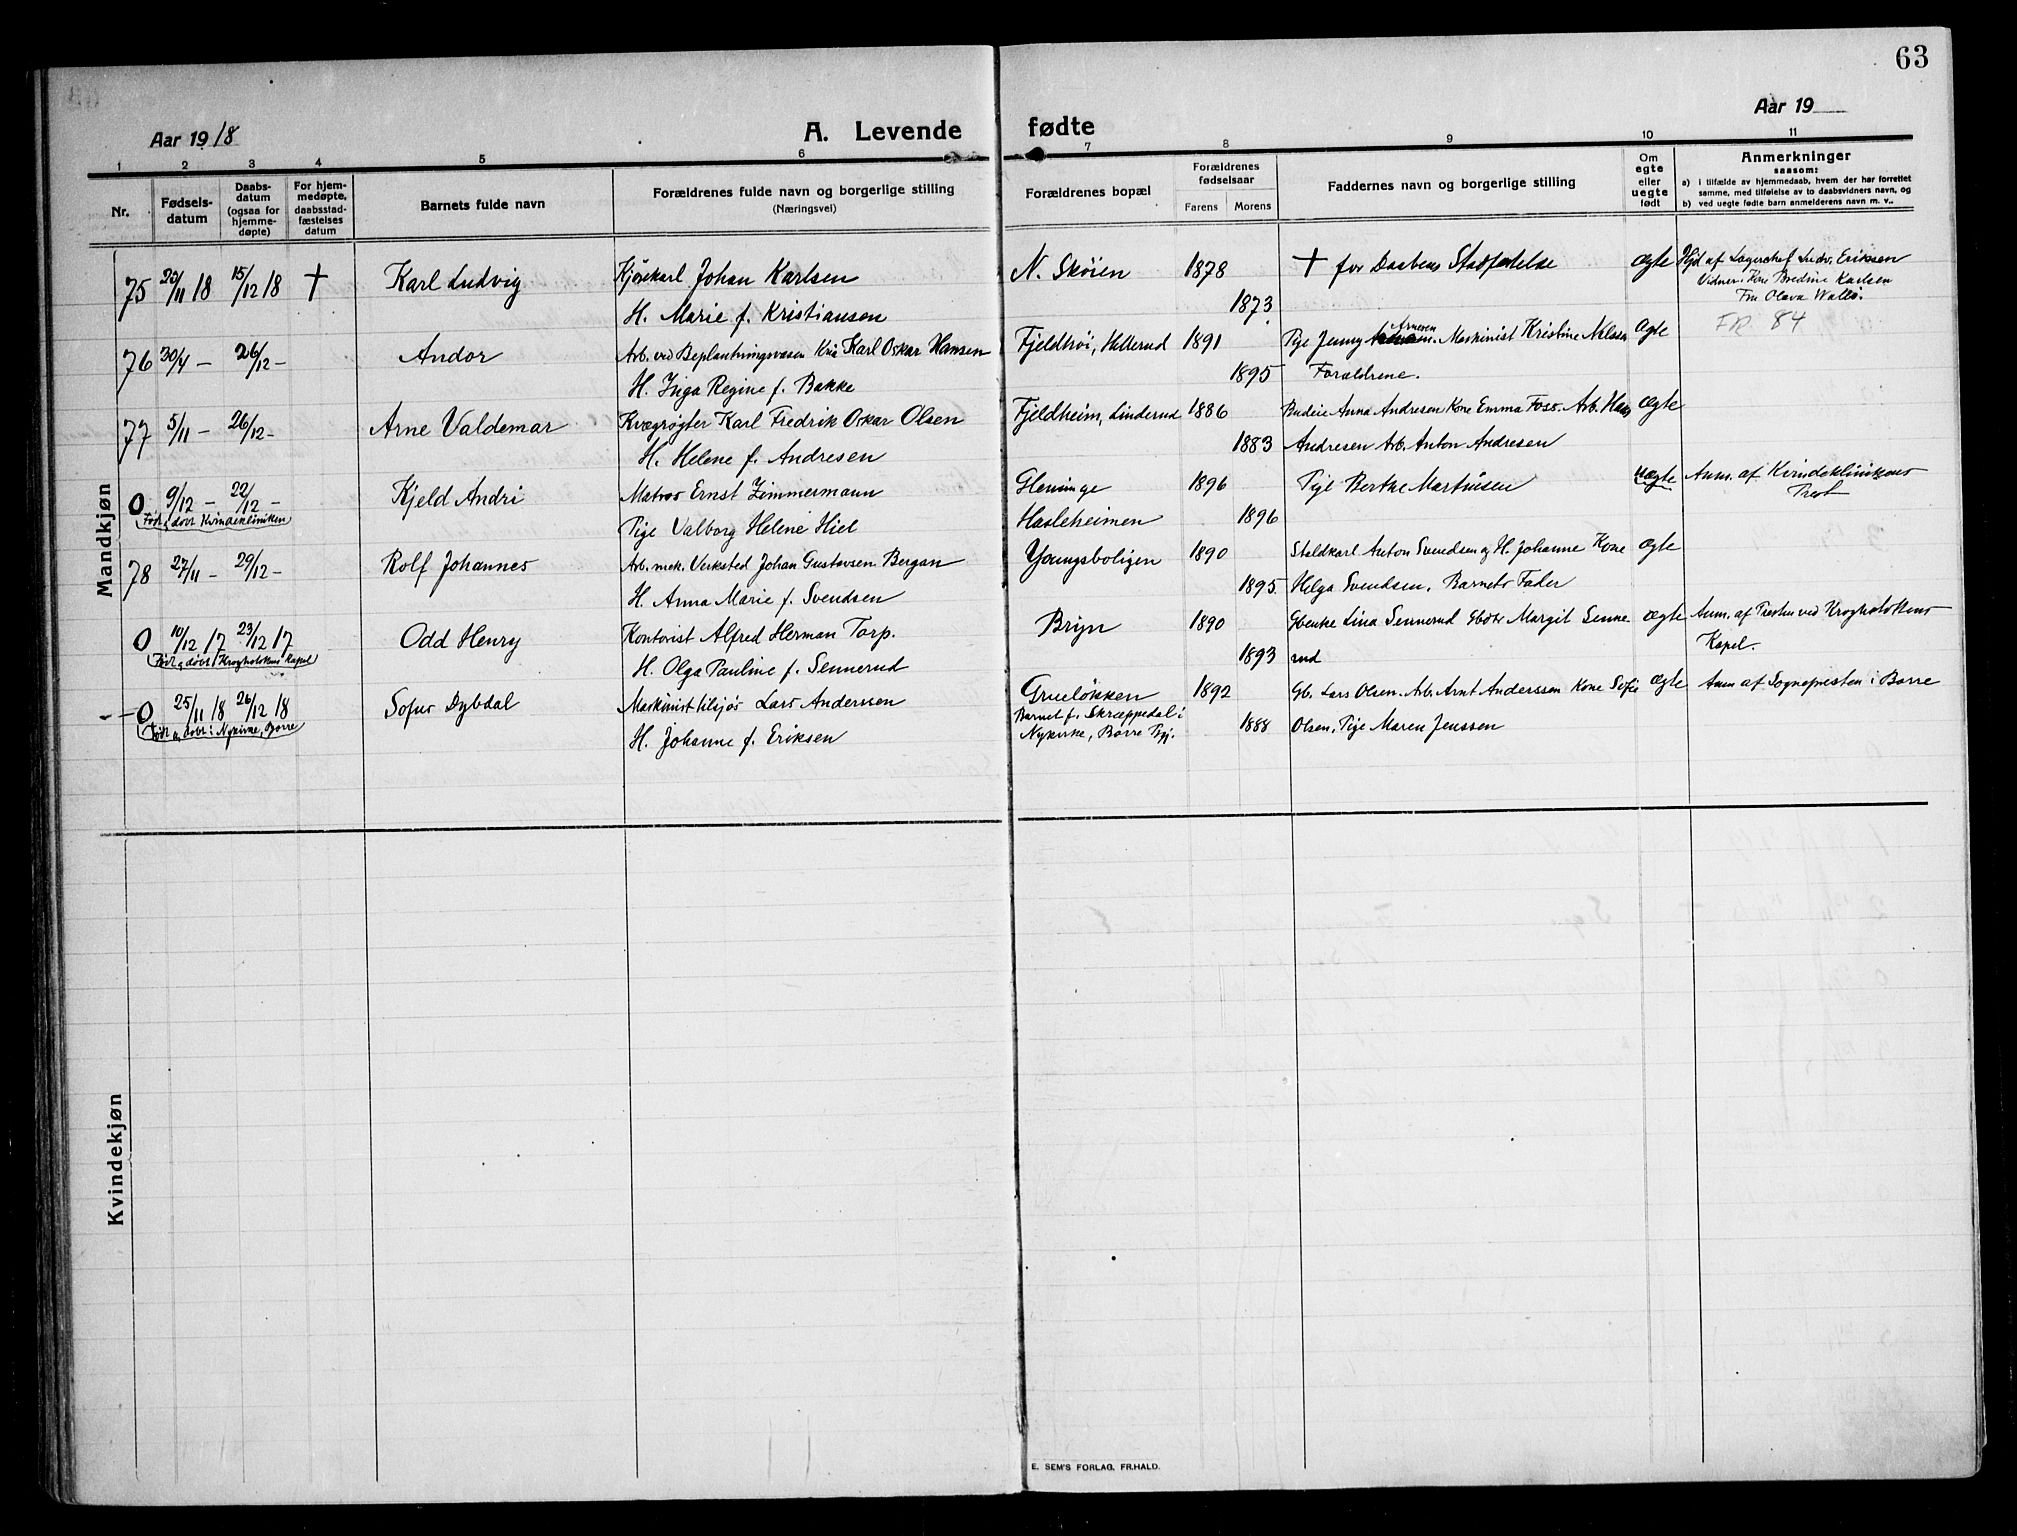 63
Aar 1918
A. Levende
fødte
Aar 19
1 2 3 4 5 6 7 8 9 10 11
Nr.
Fødsels-
datum
Daabs-
datum
(ogsaa for
hjemme-
døpte)
For hjem-
medøpte,
daabsstad-
fæstelses
datum
Barnets fulde navn
Forældrenes fulde navn og borgerlige stilling
(Næringsvei)
Forældrenes bopæl
Forældrenes
fødselsaar
Farens Morens
Faddernes navn og borgerlige stilling
Om
egte
eller
uegte
født
Anmerkninger
saasom:
a) i tilfælde av hjemmedaab, hvem der har forrettet
samme, med tilføielse av to daabsvidners navn, og
b) ved uegte fødte barn anmelderens navn m. v..
Mandkjøn
75 20/11 18 15/12 18 † Karl Ludvig Kjørekarl Johan Karlsen N. Skøien 1878 † før Daabens Stadfæstelse ægte Hjd af Lagerchef Ludv. Eriksen
Vidner: Kone Bredine Karlsen
Fru Olava Wallø.
H. Marie f. Kristiansen 1873
FR 84
76 30/4 – 26/12 – Andor Arb. ved Beplantningsvæsen Kria Karl Oskar Hansen Fjeldhøi, Hellerud 1891 Pige Jenny Arnesen. Maskinist Kristine Nilssen ægte
H. Inga Regine f. Bakke 1895 Forældrene.
77 5/11 – 26/12 – Arne Valdemar Kvægrøgter Karl Fredrik Oskar Olsen Fjeldheim, Linderud 1886 Budeie Anna Andresen Kone Emma Foss. Arb. Hans ægte
H. Helene f. Andresen 1883 Andresen Arb. Anton Andresen
0 9/12 – 22/12 – Kjeld Andri Matros Ernst Zimmermann Glenminge 1896 Pige Berthe Martinsen uægte Anm. af Kvindeklinikens
Prest
Født & døbt Kvindekliniken
Pige Valborg Helene Hiel Hasleheimen 1896
78 27/11 – 29/12 – Rolf Johannes Arb. mek. Verksted Johan Gustavsen Bergan Youngsboligen 1890 Staldkarl Anton Svendsen og H. Johanne Kone ægte
H. Anna Marie f. Svendsen 1895 Helga Svendsen, Barnets Fader
0 10/12 17 23/12 17 Odd Henry Kontorist Alfred Herman Torp. Bryn 1890 Gbenke Lina Sennerud Gbdtr Margit Senne ægte Anm. af Presten ved Kroghstøtens
Kapel.
Født & døbt Kroghstøtens Kapel
H. Olga Pauline f. Sennerud 1893 rud
0 25/11 18 26/12 18 Sofus Dybdal Maskinist tilsjøs Lars Anderssen Grueløkken 1892 Gb. Lars Olsen. Arb. Arnt Anderssen Kone Sofie ægte Anm af Sognepresten i Borre
Født & døbt i Nykirke, Borre
H. Johanne f. Eriksen Barnet f. Skræppedal i
Nykirke, Borre Pgj. 1888 Olsen, Pige Maren Jenssen
Kvindekjøn
E. SEM'S FORLAG, FR.HALD.